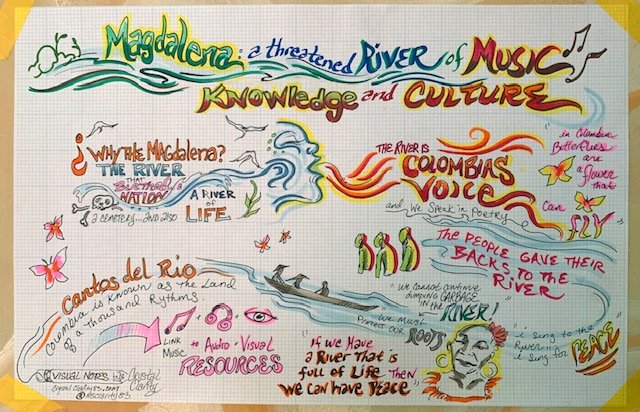 Magdalena: a threatened RIVER of MUSIC
Knowledge and CULTURE
¿WHY THE MAGDALENA?
THE RIVER
THAT
Birthed a
NATION
A RIVER
of
LIFE
a cemetery... and also
THE RIVER IS
COLOMBIAS
VOICE
and We Speak in Poetry
"in Colombia
Butterflies
are
a flower
that
Can
FLY"
THE PEOPLE GAVE THEIR
BACKS TO THE
RIVER
Cantos del Rio
Colombia is known as the Land
of a Thousand Rythms.
LINK
Music
+
to Audio · Visual
RESOURCES
"We cannot continue
dumping GARBAGE
IN THE
RIVER!
We must
Protect OUR
ROOTS
"If we Have
a River that is
full of Life Then
We can Have Peace"
"i sing to the
River
i sing for
PEACE"
VISUAL NOTES by Crystal
Clarity